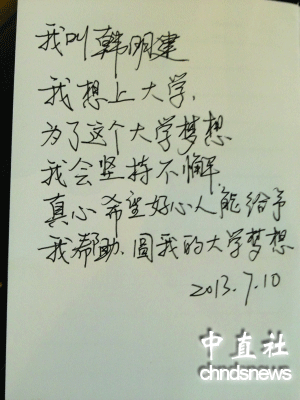 我叫韩明建
我想上大学,
为了这个大学梦想
我会坚持不懈
真心希望好心人能给予
我帮助.圆我的大学梦想
2013.7.10
中直社
chndsnews